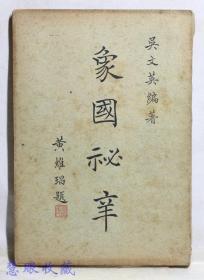 吳文英編著
象國祕辛
黃雄瑫題
慧眼收藏